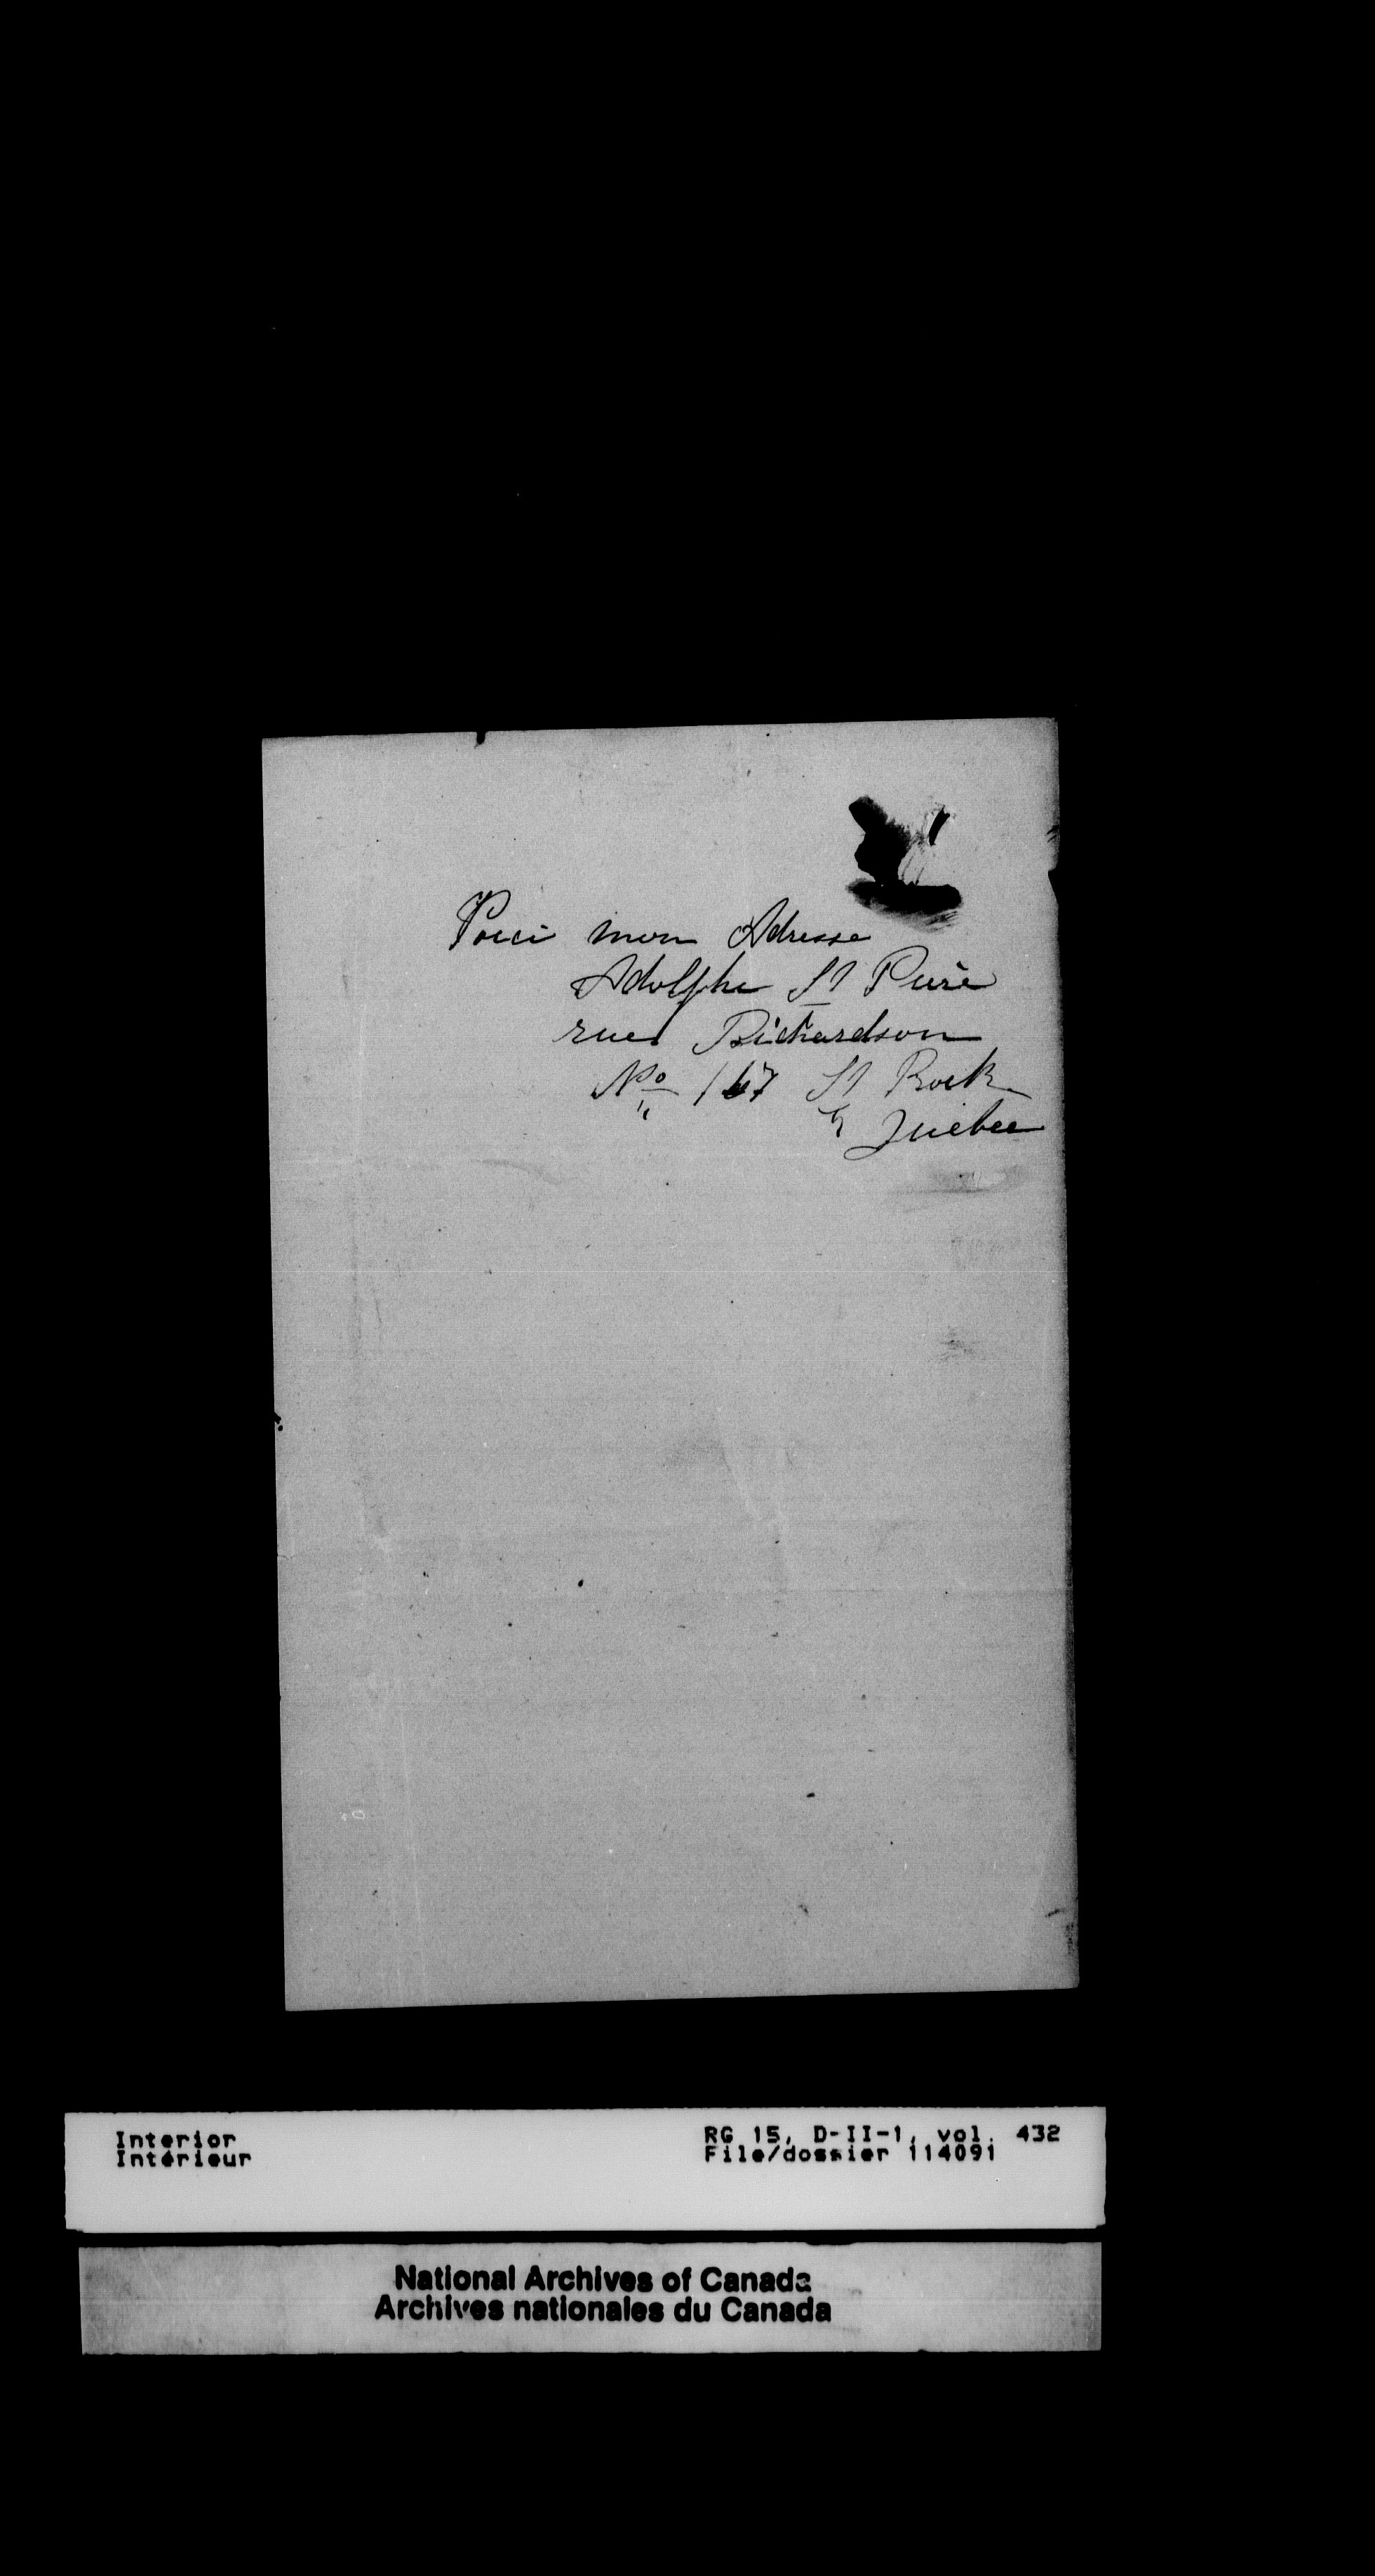 Voici mon Adresse
Adolphe St Piere
rue Richardson
No 167 St Rock
Quebec
Interior
Intérieur
RG 15, D-II-1, vol. 432
File/dossier 114091
National Archives of Canada
Archives nationales du Canada